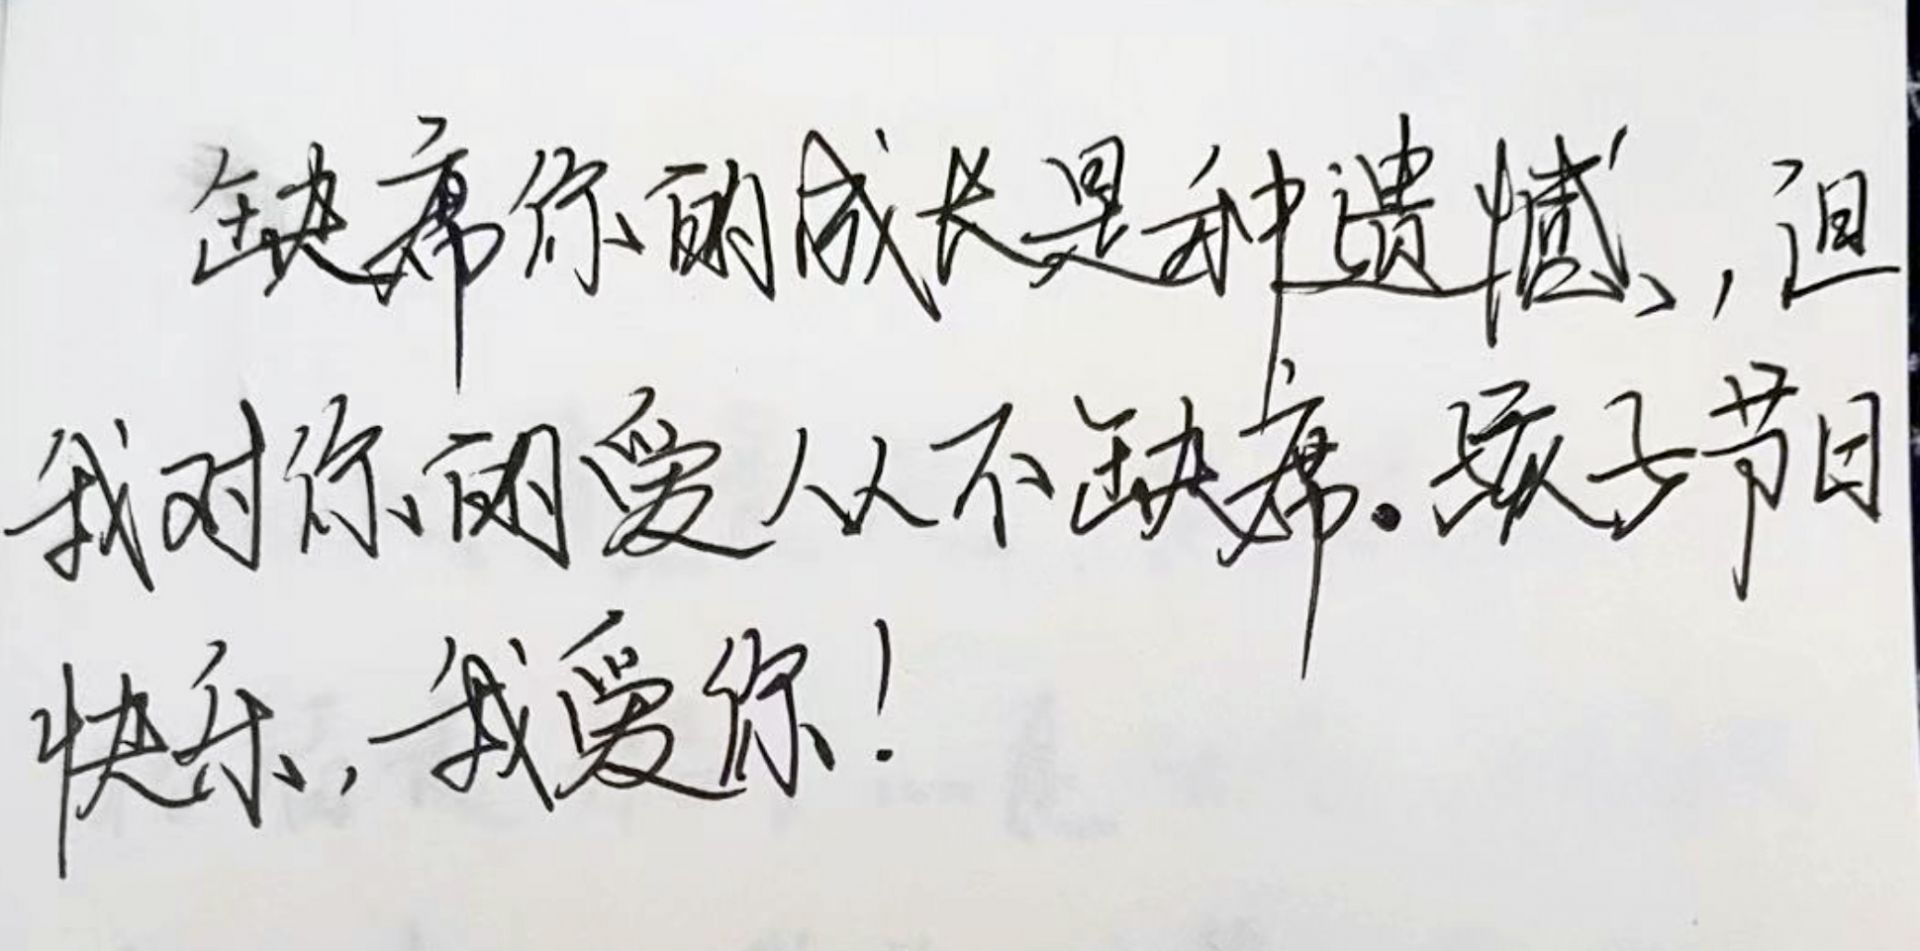 缺席你的成长是种遗憾,但
我对你的爱从不缺席.孩子节日
快乐,我爱你!